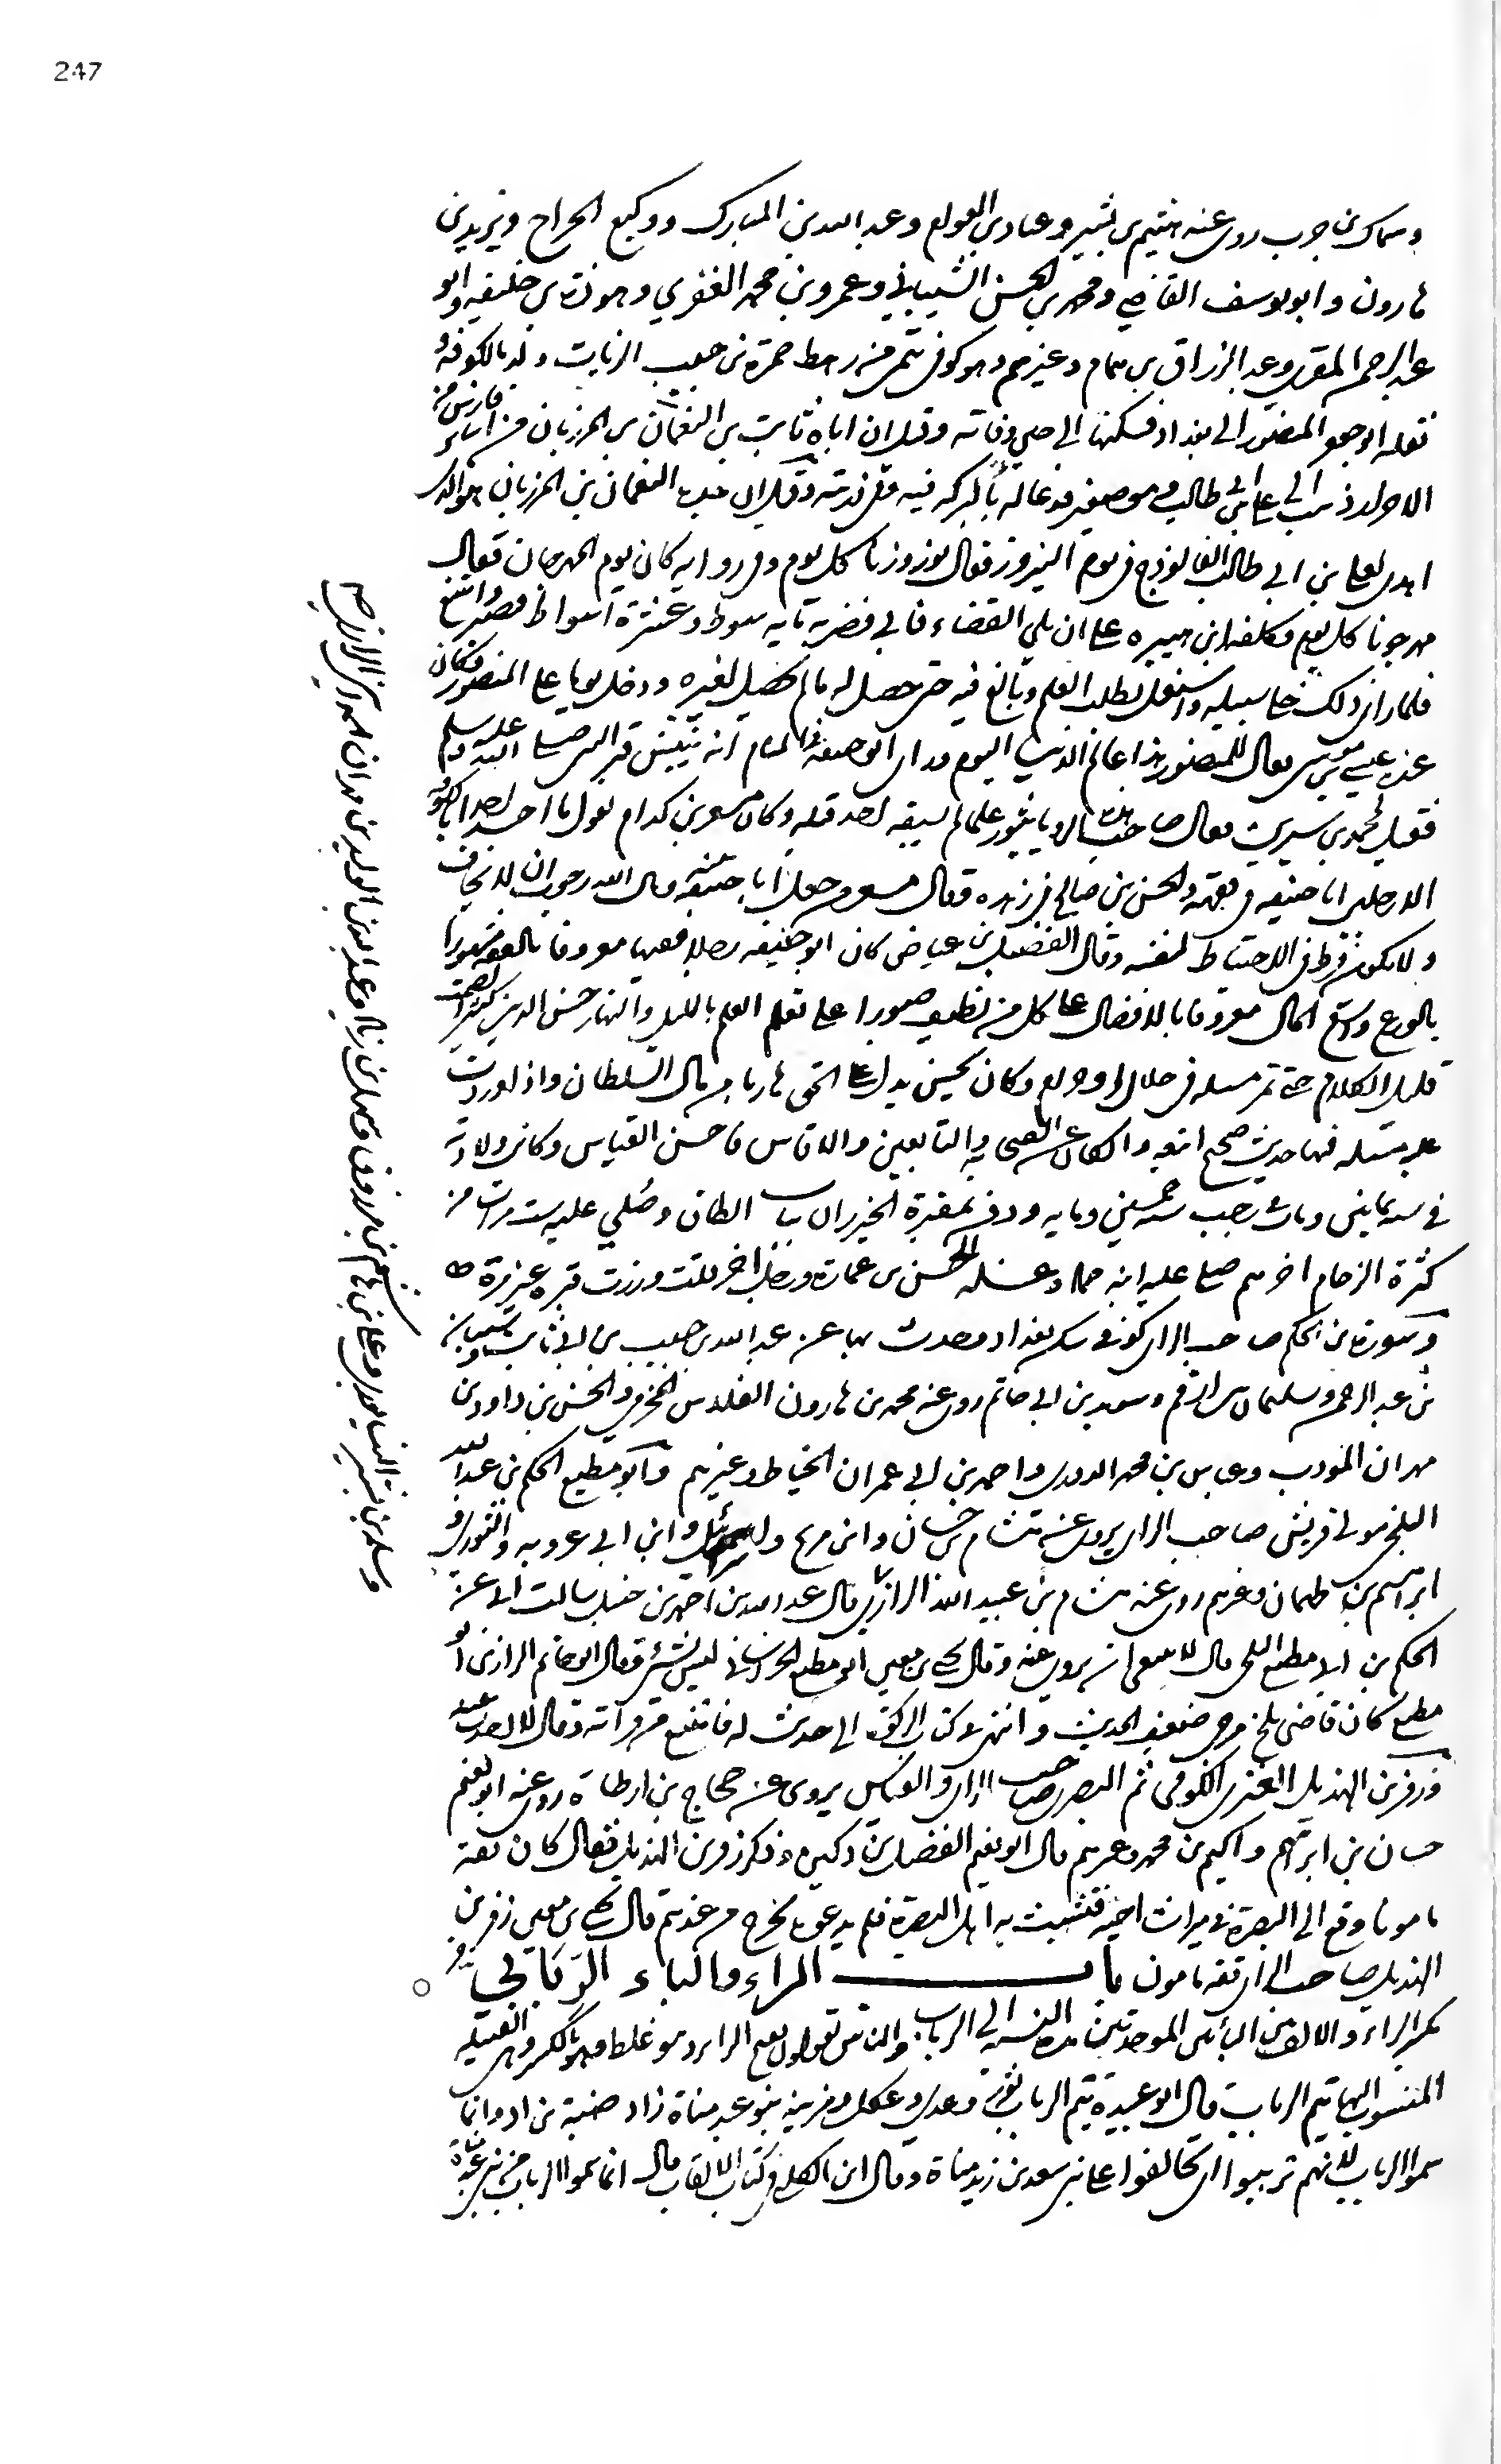 247
وسماك بن حرب روى عنه هشيم بن بشير وعباد بن العوام وعبد الله بن المبارك ووكيع الجراح ويزيد بن
هارون وابو يوسف القاضي ومحمد بن الحسن الشيباني وعمرو بن محمد العنقزي وهوذة بن خليفه وابو
عبد الرحمن المقرى وعبد الرزاق بن همام وغيرهم وهو كوفي تيمى من رهط حمزة بن حبيب الزيات ولد بالكوفة و
نقله ابو جعفر المنصور الى بغداد فسكنها الى حين وفاته وقيل ان اباه ثابت بن النعمان بن المرزبان من ابناء فارس من
الاحرار ذهب الى على بن ابى طالب وهو صغير فدعا له بالبركه فيه وفي ذريته وقيل ان جده النعمان بن المرزبان هو الذى
اهدى لعلى بن ابي طالب الفالوذج في يوم النيروز فقال نوروزنا كل يوم وفى روايه كان يوم المهرجان فقال
مهرجونا كل يوم وكلفه ابن هبيره على ان يلي القضاء فابى فضربه مايه سوط وعشرة اسواط فصبر وامتنع
فلما راى ذلك خلى سبيله واشتغل بطلب العلم وبالغ فيه حتى حصل له ما لم يحصل لغيره ودخل يوما على المنصور وكان
عنده عيسى بن موسى فقال للمنصور هذا عالم الدنيا اليوم وراى ابو حنيفه في المنام انه ينبش قبر النبي صلى الله عليه وسلم
فقيل لمحمد بن سيرين فقال صاحب هذه الرؤيا يثور علما لم يسبقه احد قبله وكان مسعر بن كدام يقول ما احسد احدا بالكوفه
الا رجلين ابا حنيفه في فقهه والحسن بن صالح في زهده وقال مسعر من جعل ابا حنيفه بينه وبين الله رجوت ان لا يخاف
ولا يكون فرط في الاحتياط لنفسه وقال الفضيل بن عياض كان ابو حنيفه رجلا فقيها معروفا بالفقه مشهورا
بالورع واسع المال معروفا بالافضال على كل من يطيف صبورا على تعلم العلم بالليل والنهار حسن الدين كثير الصمت
قليل الكلام حتى ترد مسله في حلال او حرام وكان يحسن يدل على الحق هاربا من مال السلطان واذا وردت
عليه مسله فيها حديث صحيح اتبعه وان كان عن الصحابه والتابعين والا قاس فاحسن القياس وكانت ولادته
في سنه ثمانين ومات في رجب سنه خمسين ومايه ودفن بمقبرة الخيزران بباب الطاق وصلي عليه ست مرات من
كثرة الزحام اخرهم صلى عليه ابنه حماد وغسله الحسن بن عمارة ورجل اخر قلت وزرت قبره غير مرة
وسورة بن الحكم صاحب الراى كوفي سكن بغداد وحدث بها عن عبد الله بن حبيب بن ابى ثابت وشيبان
بن عبد الرحمن وسليمان بن ارقم وسويد بن ابي حاتم روى عنه محمد بن هارون الفلاس المخرمي والحسن بن داود بن
مهران المؤدب وعباس بن محمد الدوري واحمد بن ابي عمران الخياط وغيرهم وابو مطيع الحكم بن عبد الله
البلخي مولى قريش صاحب الراى يروى عن هشام بن حسان وابن جريج واسرائيل وابن ابي عروبه والثورى و
ابراهيم بن طهمان وغيرهم روى عنه هشام بن عبيد الله الرازي قال عبد الله بن احمد بن حنبل سالت ابى عن
الحكم بن ابى مطيع البلخى قال لا ينبغى ان يروى عنه وقال يحيى بن معين ابو مطيع الخراساني ليس بشئ وقال ابو حاتم الرازى ابو
مطيع كان قاضى بلخ مرجى ضعيف الحديث وانتهى في كتاب الزكوة الى حديث له فامتنع من قراته وقال لا احدث عنه
وزفر بن الهذيل العنبرى الكوفي ثم البصرى صاحب الراى والقياس يروى عن حجاج بن ارطاة روى عنه ابو نعيم
حسان بن ابراهيم واكثم بن محمد وغيرهم قال ابو نعيم الفضل بن دكين وذكر زفر بن الهذيل فقال كان ثقة
مامونا وقع الى البصرة في ميراث اخيه فتشبث به اهل البصرة فلم يدعوه يخرج من عندهم قال يحيى بن معين زفر بن
الهذيل صاحب الراى ثقه مامون باب الراء والباء الربابي
بكسر الراء والالف بين البائين الموحدتين هذه النسبه الى الرباب والناس تقول بفتح الراء وهو غلط وهو بالكسر وهى القبيله
المنسوب اليها تيم الرباب قال ابو عبيدة تيم الرباب ثور وعدى وعكل ومزينه بنو عبد مناة زاد وضبة بن اد وانما
سموا الرباب لانهم ترببوا اى تحالفوا على بنى سعد بن زيد مناة وقال ابن الكلبى في كتاب الالقاب قال انما سموا الرباب من بنى عبد مناة